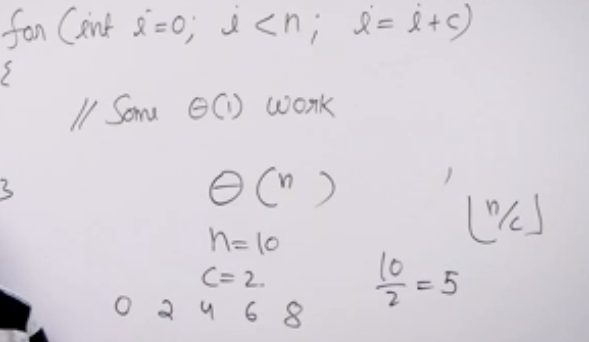 for (int i=0; i<n; i=i+c)
{
// Some Θ(1) work
}
Θ(n)
⌊n/c⌋
n=10
c=2.
10/2 = 5
0 2 4 6 8